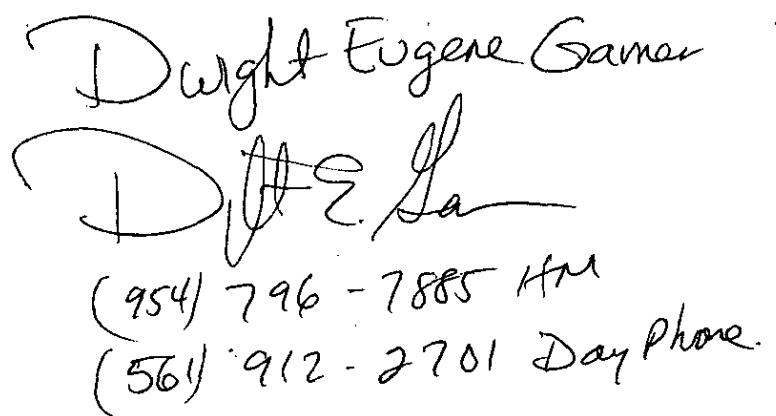 Dwight Eugene Garner
D E. Ga
(954) 796-7885 HM
(561) 912-2701 Day Phone.